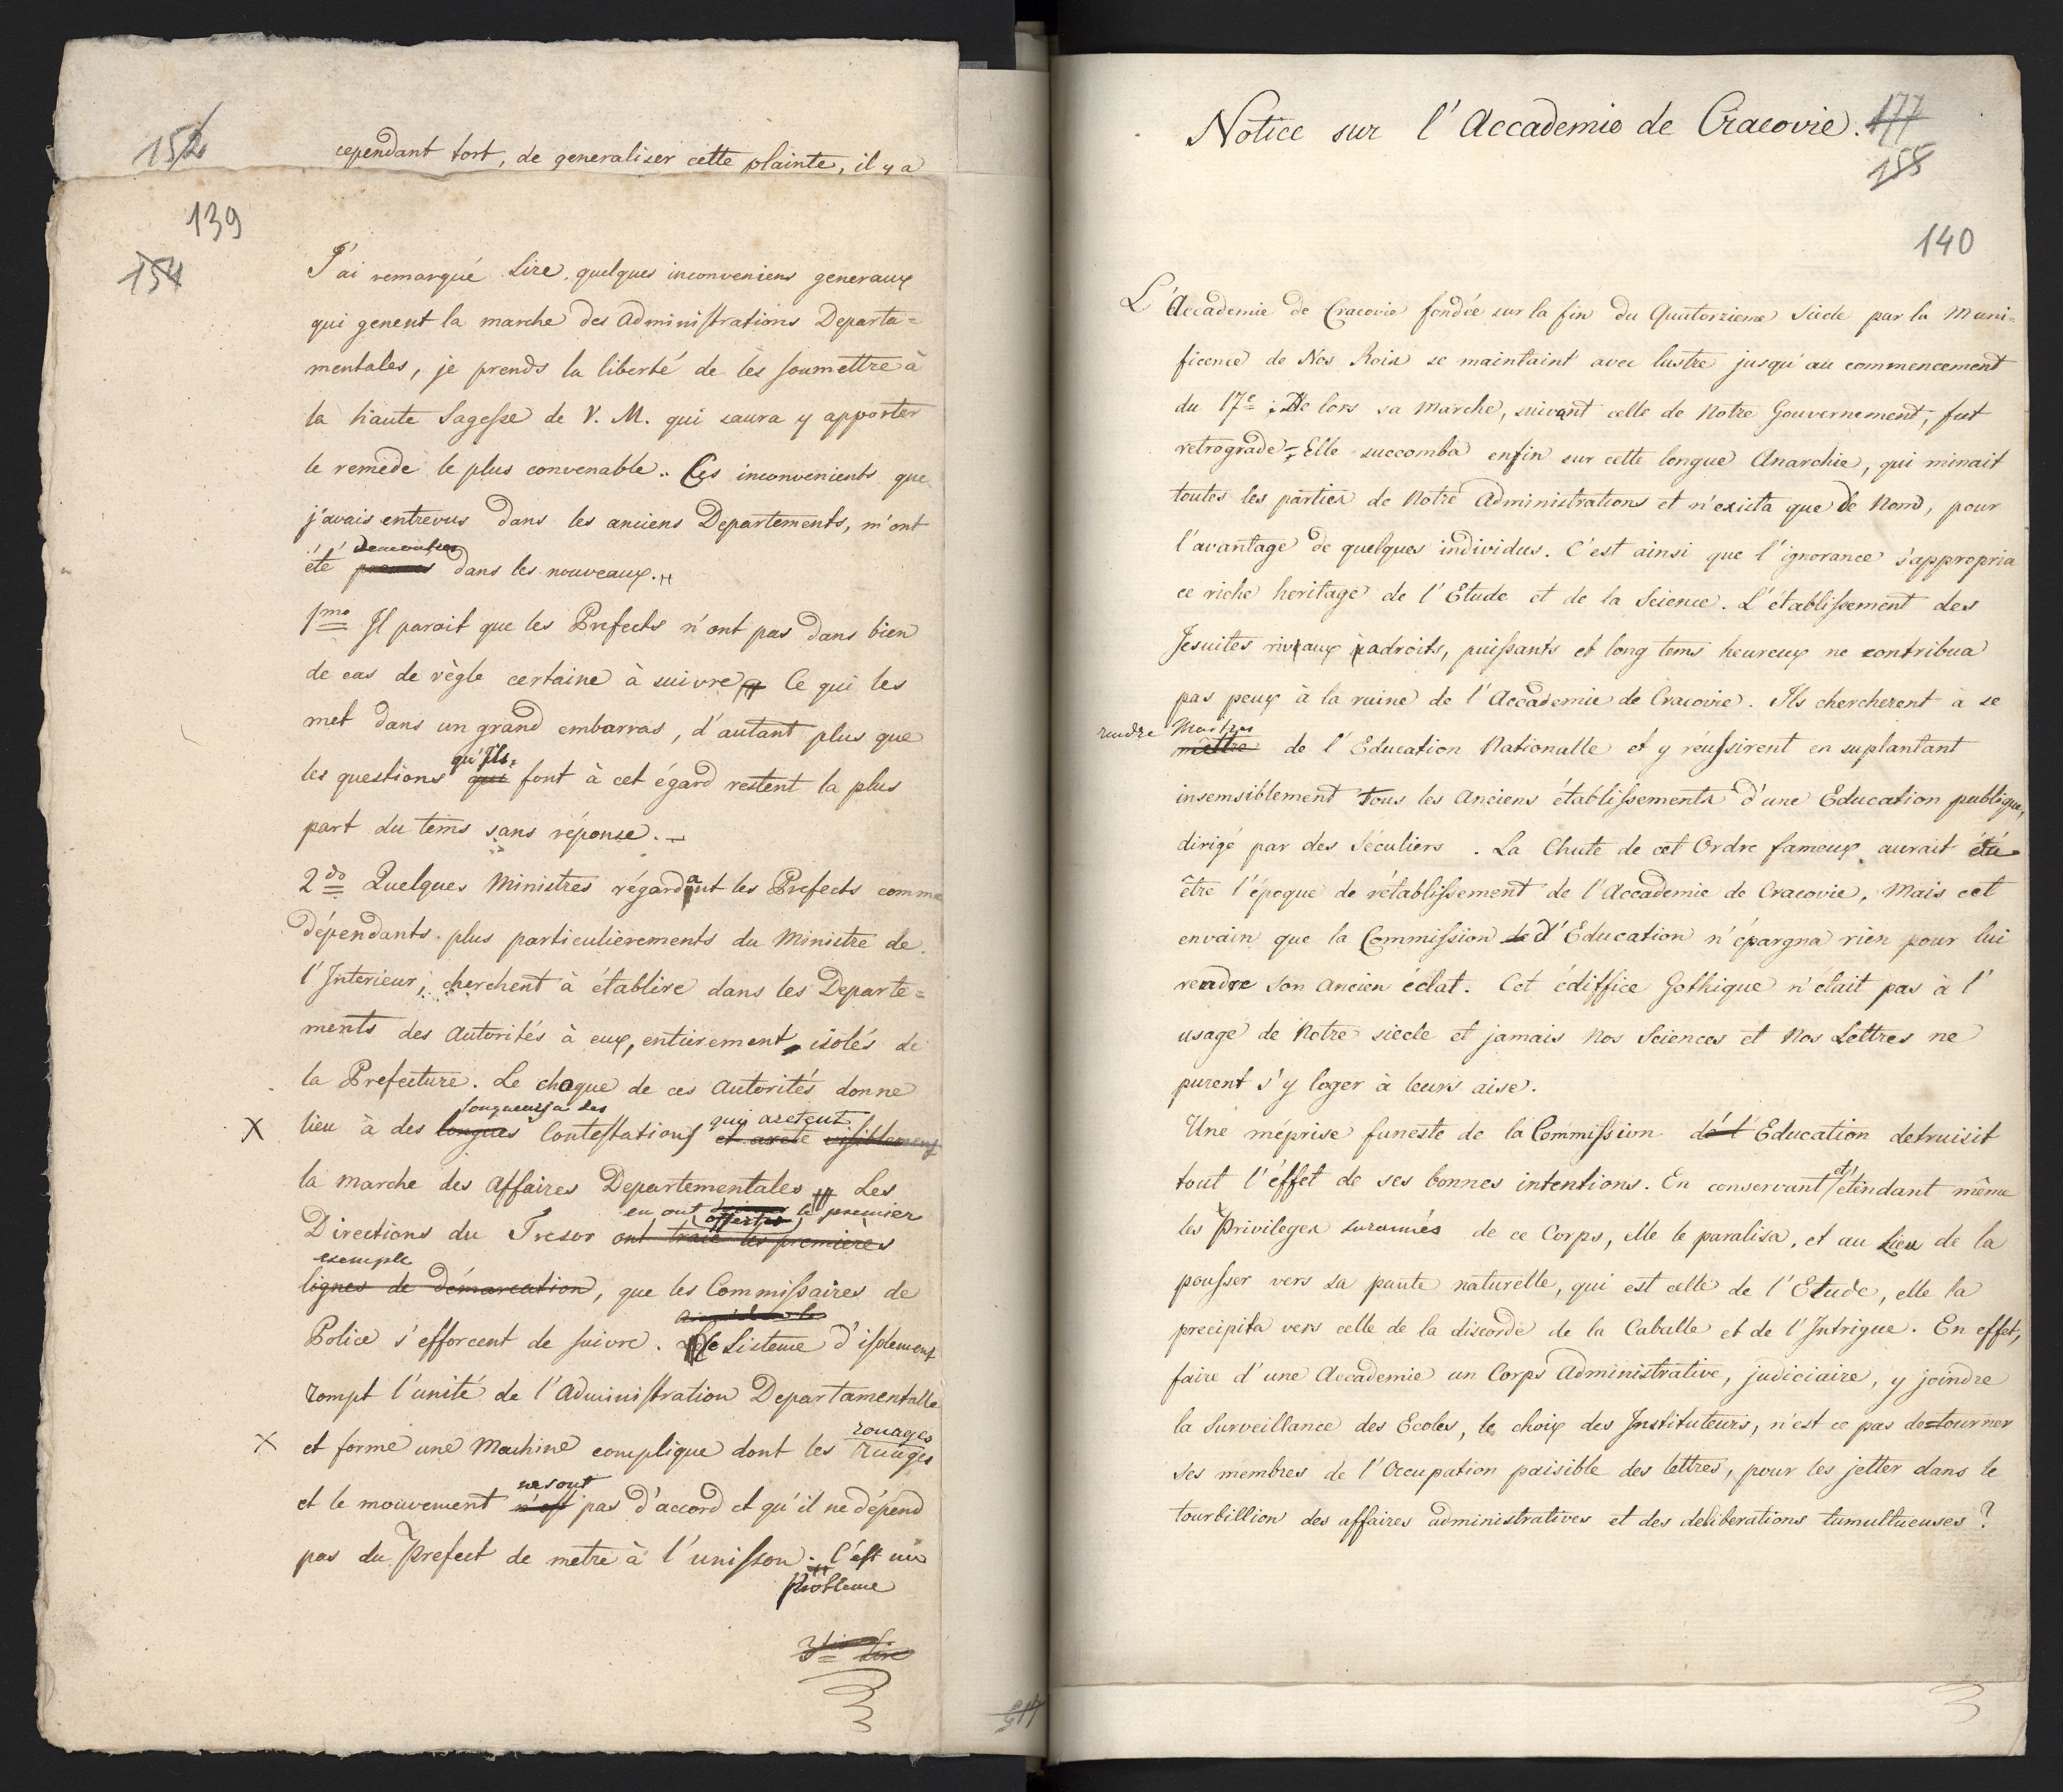 152
cependant tort, de generaliser cette plainte, il y a
139
154
J'ai remarqué Sire quelques inconveniens generaux
qui genent la marche des Administrations Departa=
mentales, je prends la liberté de les soumettre à
la haute Sagesse de V. M. qui saura y apporter
le remede le plus convenable. Ces inconvenients que
j'avais entrevus dans les anciens Departements, m'ont
été dans les nouveaux.
1mo Il parait que les Prefects n'ont pas dans bien
de cas de règle certaine à suivre Ce qui les
met dans un grand embarras, d'autant plus que
qu'Ils
les questions qui font à cet égard restent la plus
part du tems sans réponse. -
2do Quelques Ministres régardant les Prefects comme
dépendants plus particulièrements du Ministre de
l'Interieur, cherchent à établire dans les Departe=
ments des Autorités à eux, entierement isolés de
la Prefecture. Le choque de ces Autorités donne
X
qui aretent
lieu à des longues Contestations et arete visiblement
la marche des Affaires Departementales Les
en ont offertes le premier
Directions du Tresor ont tracé les premieres
exemple
lignes de démarcation, que les Commissaires de
Police s'efforcent de suivre. Ce Sisteme d'isolement
rompt l'unité de l'Administration Departamentalle
rouages
X et forme une Machine complique dont les ruages
ne sont
et le mouvement n'est pas d'accord et qu'il ne dépend
pas du Prefect de metre à l'unisson. C'est un
Probleme
3tio Sire
Notice sur l'Accademie de Cracovie.
177
155
140
L'Accademie de Cracovie fondée sur la fin du Quatorzieme Siecle par la Muni=
ficence de Nos Rois se maintaint avec lustre jusqu'au commencement
du 17e ; De lors sa Marche, suivant celle de Notre Gouvernement, fut
retrograde = Elle succomba enfin sur cette longue Anarchie, qui minait
toutes les parties de Notre Administrations et n'exista que de Nom, pour
l'avantage de quelques individus. C'est ainsi que l'ignorance s'appropria
ce riche heritage de l'Etude et de la Science. L'établissement des
Jesuites rivaux adroits, puissants et long tems heureux ne contribua
pas peux à la ruine de l'Accademie de Cracovie. Ils chercherent à se
rendre Maitres
mettre de l'Education Nationalle et y réussirent en suplantant
insemsiblement Tous les Anciens établissements d'une Education publique,
dirigé par des Séculiers. La Chute de cet Ordre fameux aurait été
être l'époque de rétablissement de l'Accademie de Cracovie, Mais cet
envain que la Commission de d'Education n'épargna rien pour lui
rendre son Ancien éclat. Cet édiffice Gothique n'était pas à l'
usage de Notre siecle et jamais Nos Sciences et Nos Lettres ne
purent s'y loger à leurs aise.
Une méprise funeste de la Commission de l'Education detruisit
et
tout l'éffet de ses bonnes intentions. En conservant étendant même
les Privileges surannés de ce Corps, elle le paralisa, et au Lieu de la
pousser vers sa pente naturelle, qui est celle de l'Etude, elle la
precipita vers celle de la discorde de la Caballe et de l'Intrigue. En effet,
faire d'une Accademie un Corps Administrative, judiciaire, y joindre
la Surveillance des Ecoles, le choix des Instituteurs, n'est ce pas de=tourner
ses membres de l'Occupation paisible des lettres, pour les jetter dans le
tourbillion des affaires administratives et des deliberations tumultueuses ?